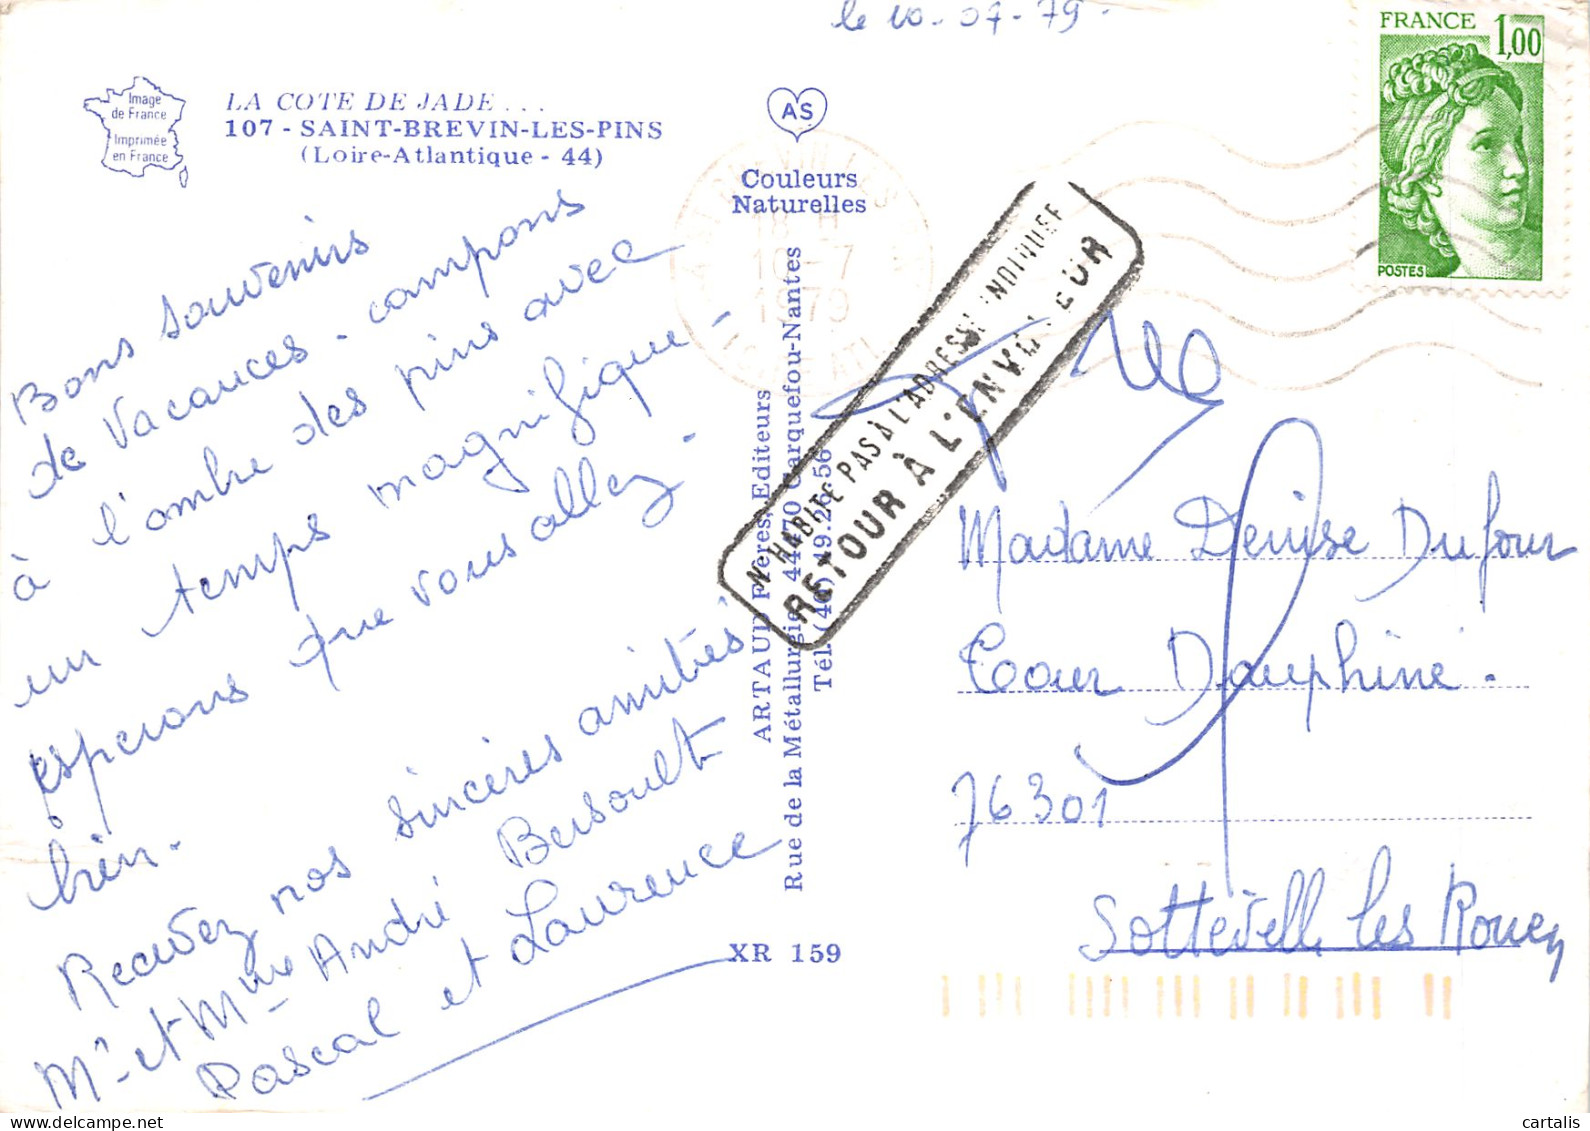 le 10-07-79-
FRANCE 1,00
POSTES
Image
de France
Imprimée
en France
LA COTE DE JADE...
107 - SAINT-BREVIN-LES-PINS
(Loire-Atlantique - 44)
AS
Couleurs
Naturelles
18 H
10-7
1979
N'HABITE PAS À L'ADRESSE INDIQUEE
RETOUR À L'ENVOYEUR
Bons souvenirs
de vacances - campons
à l'ombre des pins avec
un temps magnifique -
esperons que vous allez -
bien.
Recevez nos sincères amitiés
Mr et Mme André Bersoult
Pascal et Laurence
ARTAUD Frères, Editeurs
Rue de la Métallurgie 44470 Carquefou-Nantes
Tél. (40) 49.26.56
XR 159
Madame Denise Dufour
Tour Dauphine.
76301
Sotteville les Rouen
cartalis